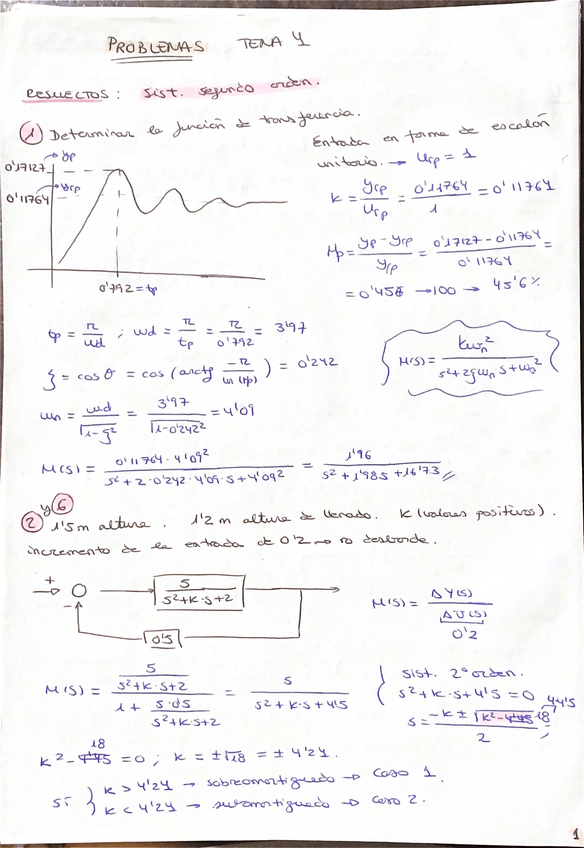 PROBLEMAS TEMA 4
RESUELTOS: Sist. segundo orden.
① Determinar la función de transferencia.
Entrada en forme de escalón
unitorio. → Urp = 1
0'17127 → yp
0'11764 → yrp
0'792 = tp
K = yrp / Urp = 0'11764 / 1 = 0'11764
Mp = yp - yrp / yrp = 0'17127 - 0'11764 / 0'11764 =
= 0'456 → 100 → 45'6%
tp = π / wd ; wd = π / tp = π / 0'792 = 3'97
ξ = cos θ = cos (arctg -π / ln(Mp)) = 0'242
M(s) = kwn² / s² + 2ξwn s + wn²
wn = wd / √1-ξ² = 3'97 / √1-0'242² = 4'09
M(s) = 0'11764 · 4'09² / s² + 2 · 0'242 · 4'09 · s + 4'09² = 1'96 / s² + 1'98s + 16'73
y ⑥
② 1'5m altura. 1'2 m altura de llenado. K (valores positivos).
incremento de la entrada de 0'2 → no desborde.
+
-
5 / s²+K·s+2
0'5
M(s) = ΔY(s) / ΔU(s)
0'2
M(s) = 5 / s²+K·s+2 / 1 + 5·0'5 / s²+K·s+2 = 5 / s²+K·s+4'5
Sist. 2º orden.
s²+K·s+4'5 = 0
4·4'5
s = -K ± √K²-4·4'5 18 / 2
K² - 4·4'5 18 = 0 ; K = ±√18 = ± 4'24.
Si { K > 4'24 → sobreamortiguado → Caso 1.
K < 4'24 → subamortiguado → Caso 2.
1